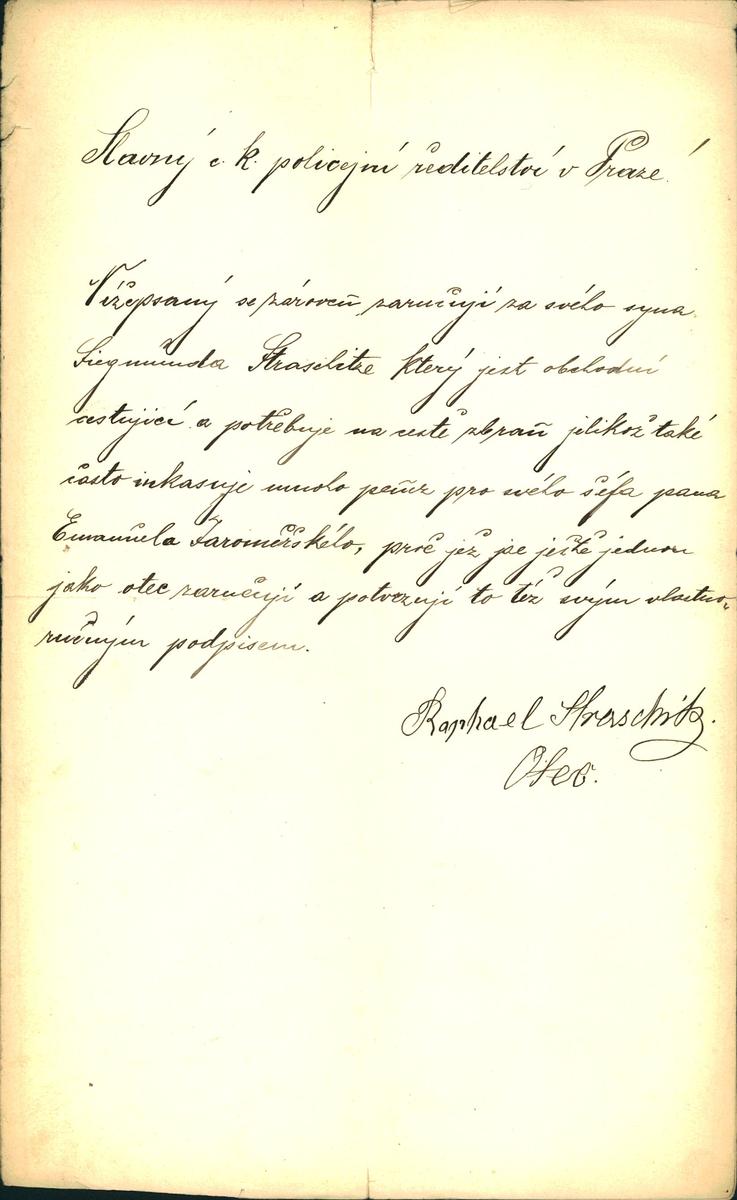 Slavný c. k. policejní ředitelství v Praze!
Nížepsaný se zároveň zaručují za svého syna
Siegmunda Straschitze který jest obchodní
cestující a potřebuje na cestě zbraň jelikož také
často inkasuje mnoho peněz pro svého šéfa pana
Emanuela Jaroměřského, proč jež jse ještě jednou
jako otec zaručují a potvrzují to též svým vlastno-
ručným podpisem.
Raphael Straschitz.
Otec.